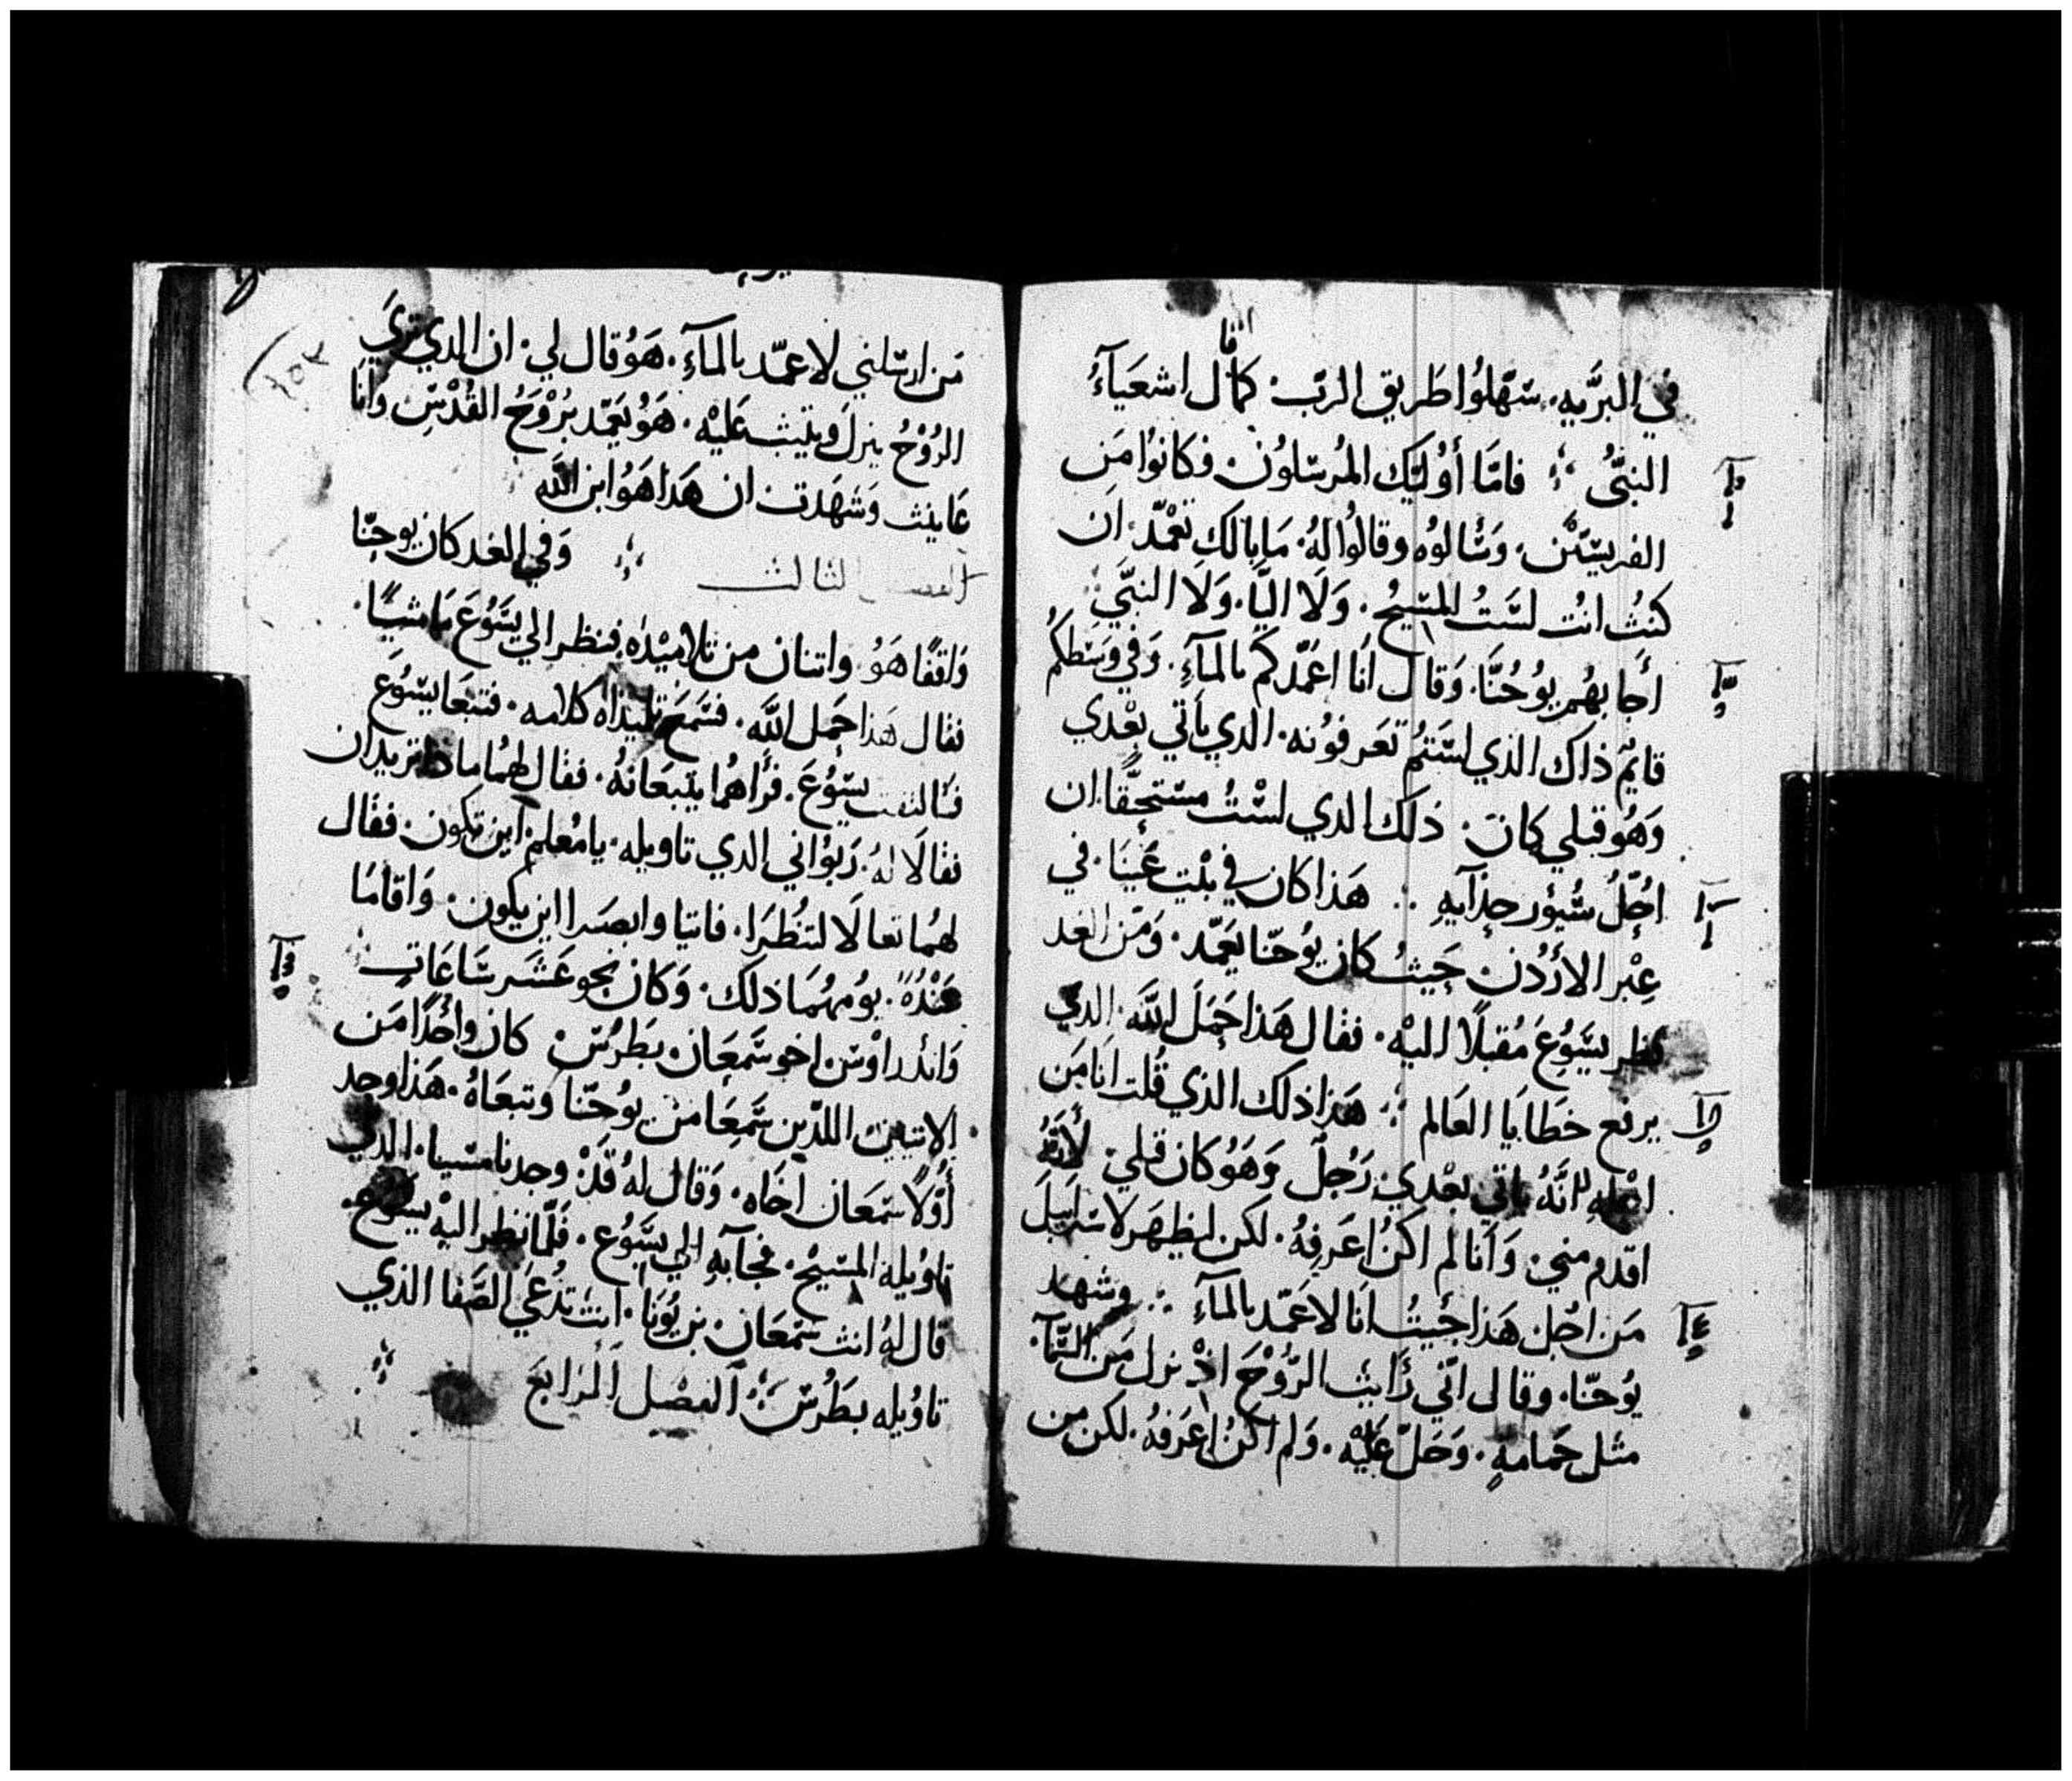 في البرّيه. سَهّلوُا طَريق الربّ. كما قال اشعَيآءُ
النبيُّ فامّا أوُليَك المُرسَلوُن. فكانوُا مَن
الفريسيّن. وَسَالوُه وقالوُا لهُ. مَا بَالك تعْمّد. ان
كنتُ انت لسَتُ المسَيحُ. وَلَا اليّا. وَلَا النبَيّ
أجابهُم يوُحُنّا. وَقال انَا اعَمّدكم بالمآءِ. وَفي وسَطكمُ
قايمٌ ذاك الذي لستمُ تعَرفوُنه. الدي يأتي بعْدي
وَهُو قبلي كان. ذلك الدي لسْتُ مسَتحقًّا ان
احُلّ سُيوُر حذآيهِ هَذا كان في بيْت عَنيَا. في
عِبْر الأرْدُن حَيثُ كان يوُحنّا يعَمّد. وَمَن الغد
نظر يسَوُعَ مُقبلًا اليْه. فقال هَذا حَمَل اللّه. الدي
يرفع خطَايَا العَالم هَذا ذلك الذي قُلت انَا مَن
اجْلهِ انّهُ ياتي بعْدي رَجُل وَهَوُ كان قبلي لأنّهُ
اقدم مني. وَانَا لم اكنُ اعَرفهُ. لكن ليظهَر لاسَراييل
مَن اجُل هَذا جَيتُ انَا لاعَمّد بالمآءِ وشهد
يوُحنّا. وقال انّي رَأيت الرّوُحَ اذْ نزل مَن السّمآء.
مثل حَمامهٍ. وَحَلّ عَليْه. وَلم اكنُ اعَرفهُ. لكن من
مَن ارسَلني لاعمّد بالمآءِ. هَوُ قال لي. ان الدي تريَ
الرُوْحُ ينزلَ ويثبت عَليْه. هَوُ يعَمّد برُوْحُ القُدْسِ وَانَا
عَاينت وَشهَدت ان هَدا هَوُ ابن اللّه
الفصل الثالث وَفي الغد كان يوحنّا
وَاقفًا هَوُ واتنان من تلاميْدهُ. فنظر الي يسَوُعَ مَاشيًا.
فقال هَذا حَمَل اللّه. فسَمَعَ تلميذاه كلامه. فتبعَا يسَوُع
فالتفت يسَوُعَ. فرَأهُما يتبعَانهُ. فقال لهمُا ماذا تريدان
فقالَا لهُ. رَبوُاني الدي تاويله. يا مُعلم. اين تكون. فقال
لهمُا تعالَا لتنُظرَا. فاتيا وابصَرا اين يكون. وَاقامَا
عَنْدُهُ. يوُمهُمَا ذلك. وَكان نحو عَشَر سَاعَاتِ
وَاندراوْسَ اخو سَمعَان. بطَرسُ كان واحُدًا مَن
الاتنين اللدّين سَمعَا من يوُحَنّا وتبعَاهُ. هَذا وجد
أوّلًا سَمعَان اخَاه. وَقال لهُ قَدْ وجدنا مسَيا. الدي
تاوُيله المسَيحْ. فجآبهِ الي يسَوُع. فَلمّا نظر اليْه يسَوُع
قال لهُ انت سَمعَان. بن يوُنا. انت تدُعَي الصَفا الذي
تاوُيله بطَرُسَ الفصْل الرَابعَ